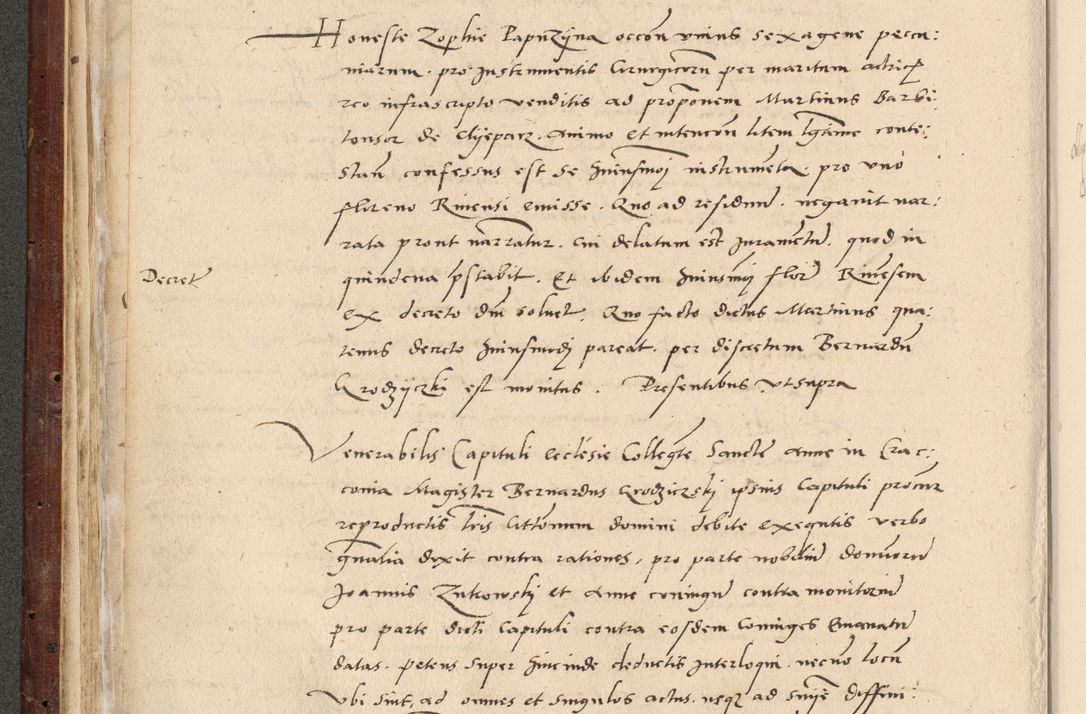 Honeste Zophie Papuzÿna occoñ unius sexagene peccu:
niarum. pro Instrumentis Cirurgicorum per maritum actricis
reo infrascripto venditis ad proponem Martinus Barbi:
tonsor de animo et intencoñ litem lgtime conte:
stañ confessus est se huiusmoj instrumenta pro uno
floreno Rinensi emisse. Quo ad residuum. negavit nar:
rata prout narratur. cui delatum est Juramentum. quod in
Decret
quindena pstabit. Et ibidem huiusmoj flor Rinesem
ex decreto dm̄ solvet. Quo facto dictus Martinus qua:
tenus decreto huiusmodj pareat. per discretum Bernardū
Grodzÿczki est monitus. Presentibus ut supra
Venerabilis Capituli ecclesie Collegte Sancte Anne in Crac:
conia Magister Bernardus Grodziczskj ipsius Capituli procur
reproductis lris Cittorum domini debite exequtis verbo
gnalia dixit contra rationes, pro parte nobilium domorum
Joannis Zutkowskj et Anne coniugum contra monitorium
pro parte dicti Capituli contra eosdem Coniuges Emanatū
datas. petens super hincinde deductis Interloqui. necnō locū
ubi sint, ad omnes et singulos actus. usqz ad snīe diffini: